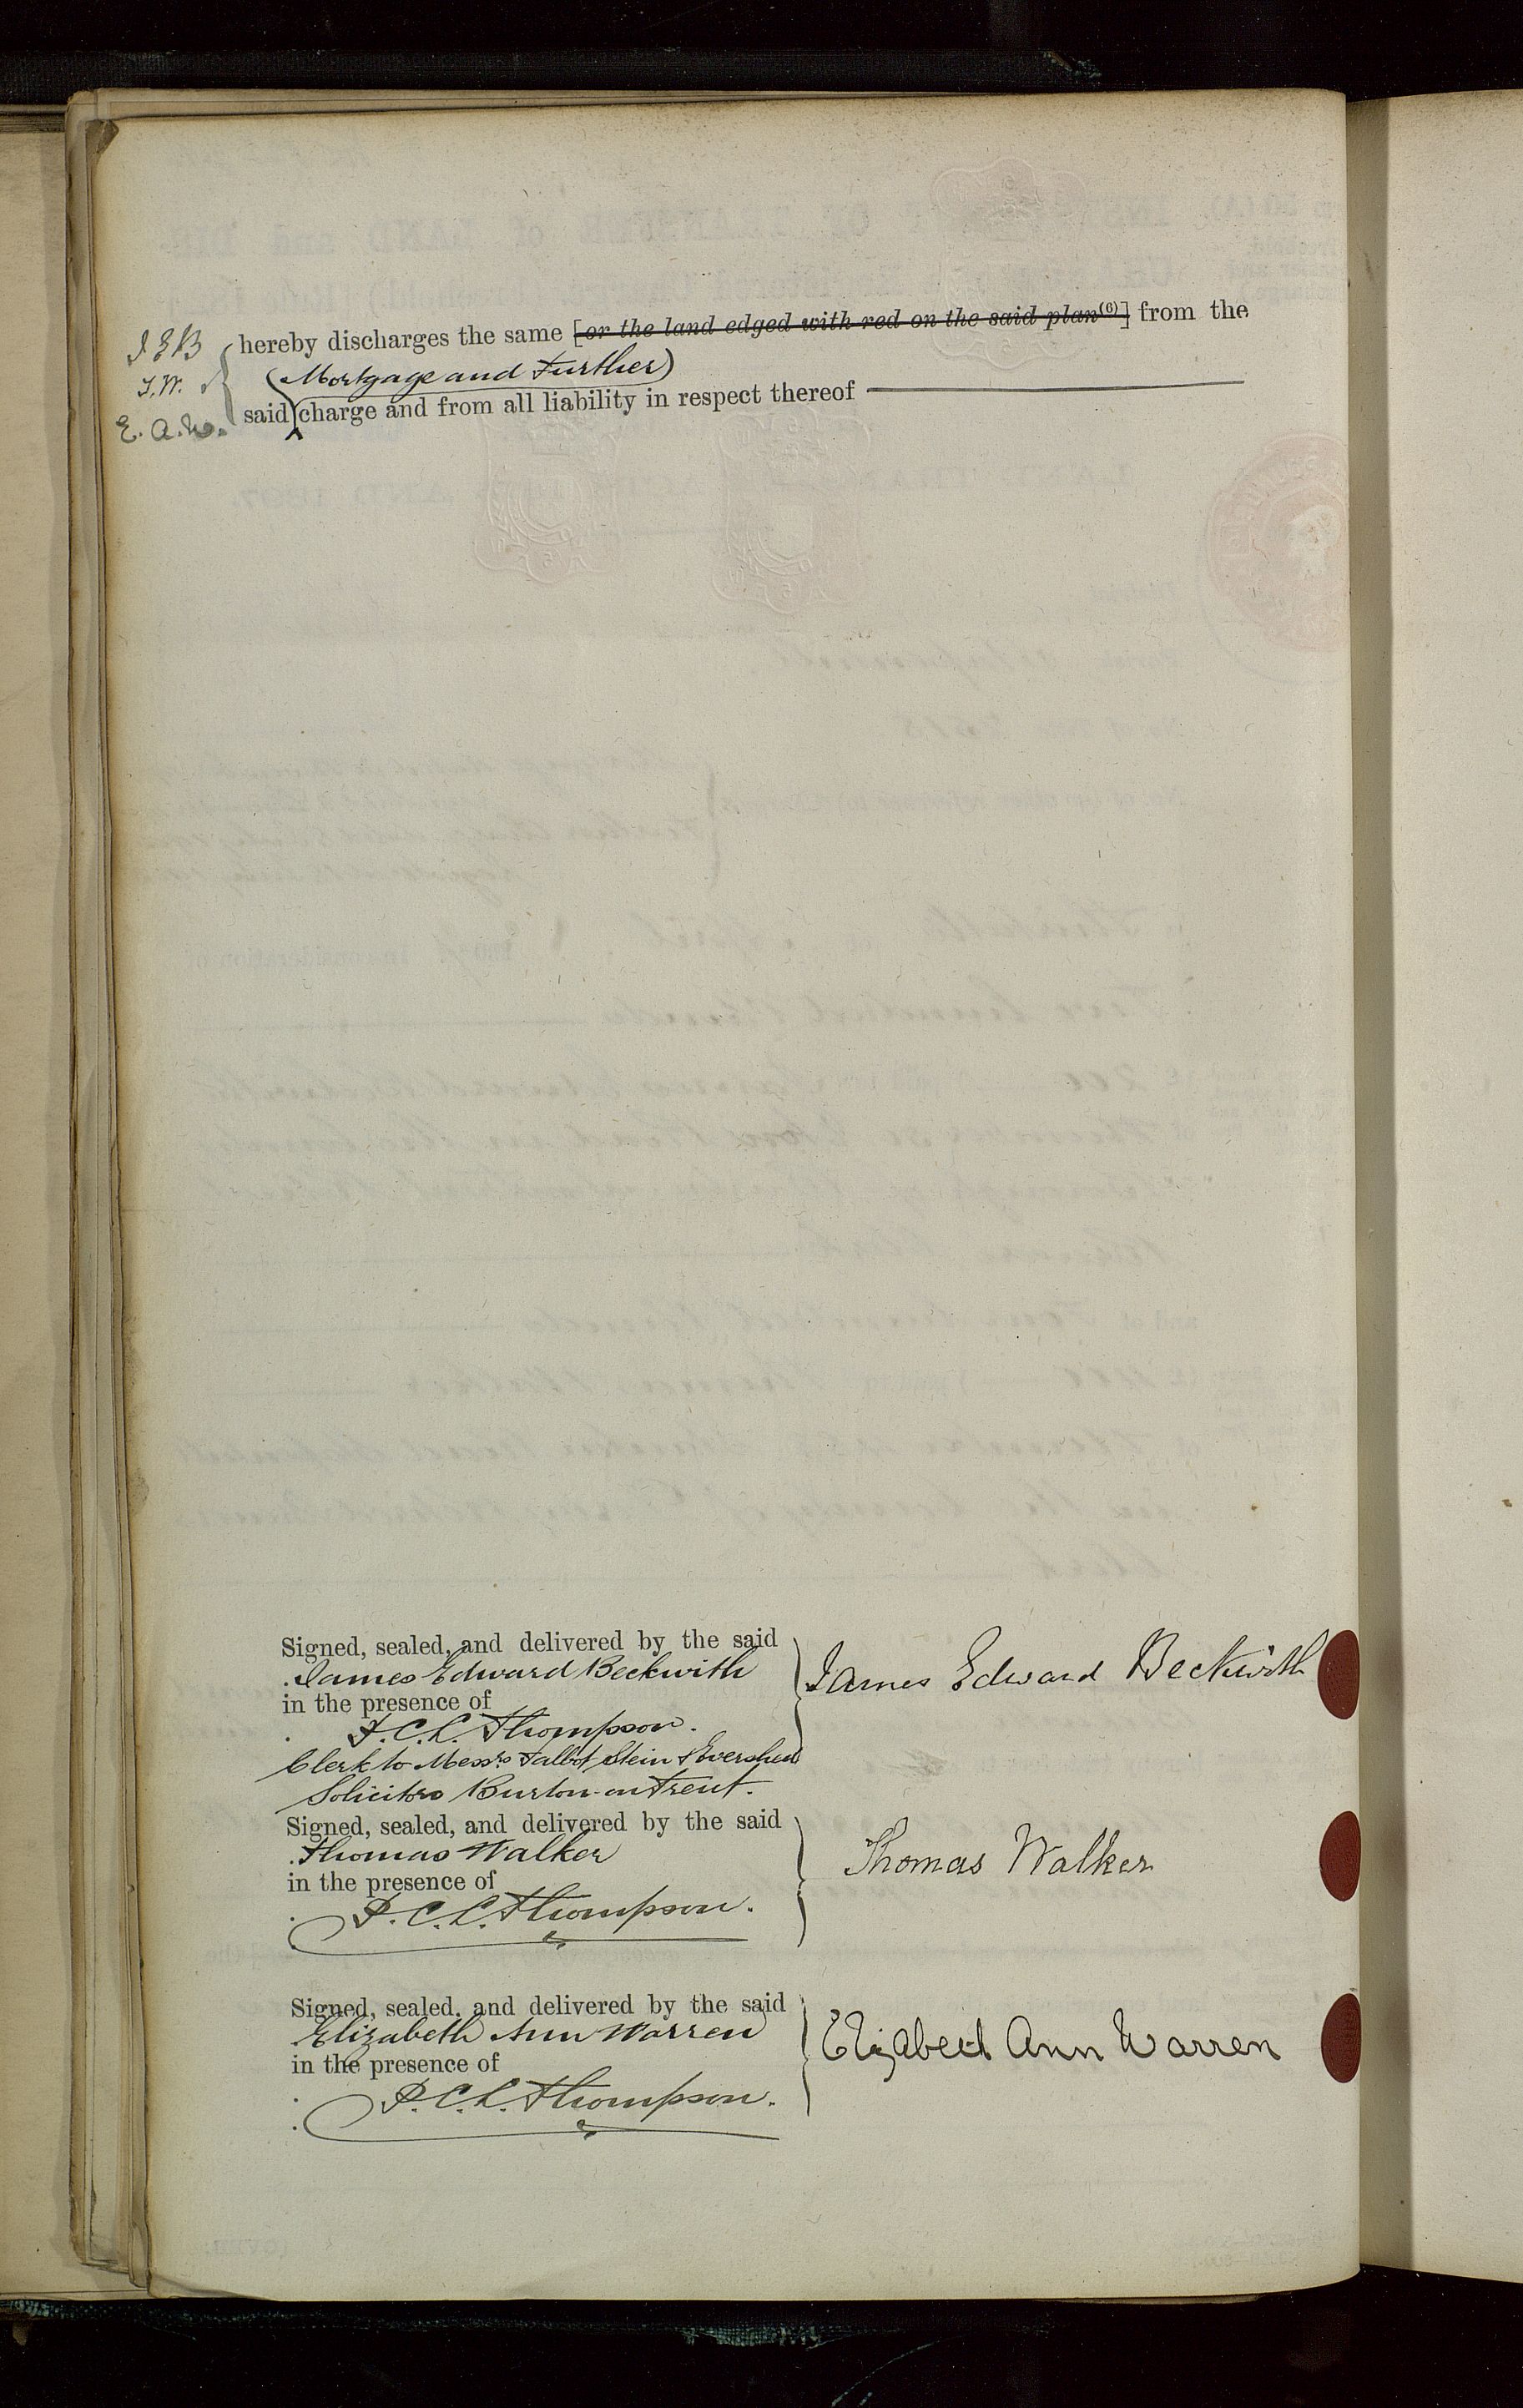 J E B
T. W.
E. A. W.
hereby discharges the same [or the land edged with red on the said plan(6)] from the
(Mortgage and Further)
said charge and from all liability in respect thereof
Signed, sealed, and delivered by the said
James Edward Beckwith
in the presence of
James Edward Beckwith
F. C. L. Thompson.
Clerk to Messrs Talbot, Stein & Evershed
Solicitors Burton-on-Trent.
Signed, sealed, and delivered by the said
Thomas Walker
in the presence of
Thomas Walker
F. C. L. Thompson.
Signed, sealed, and delivered by the said
Elizabeth Ann Warren
in the presence of
Elizabeth Ann Warren
F. C. L. Thompson.